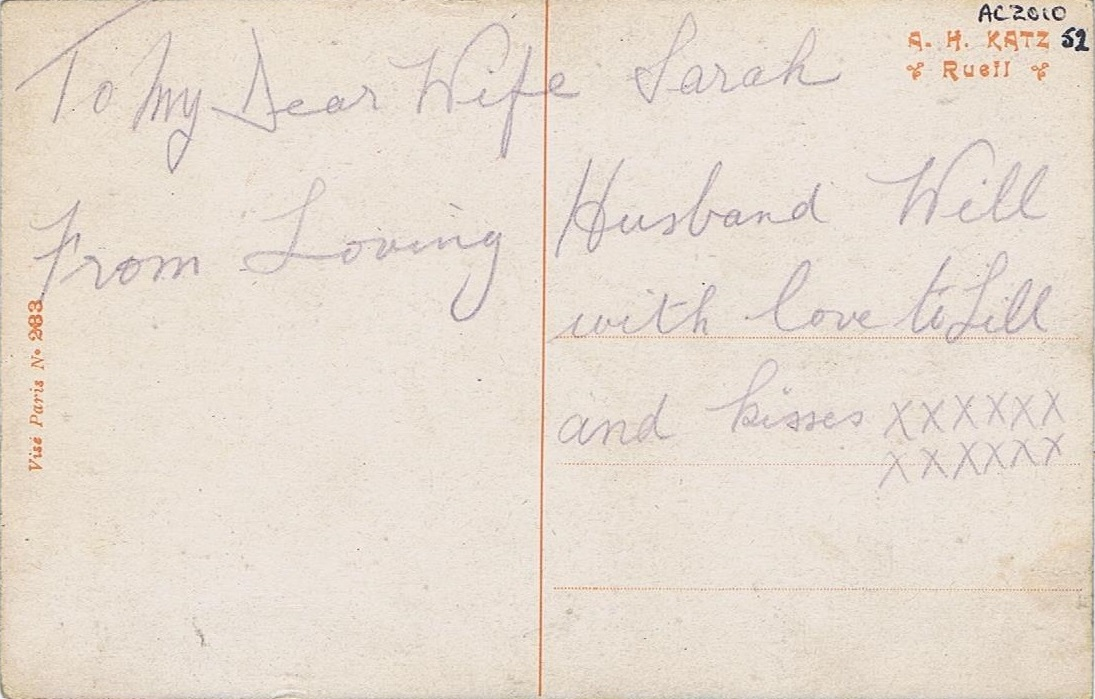 AC2010
52
A. H. KATZ
Rueil
To My Dear Wife Sarah
From Loving Husband Will
with love to Lill
and kisses XXXXXX
XXXXXX
Visé Paris No 283